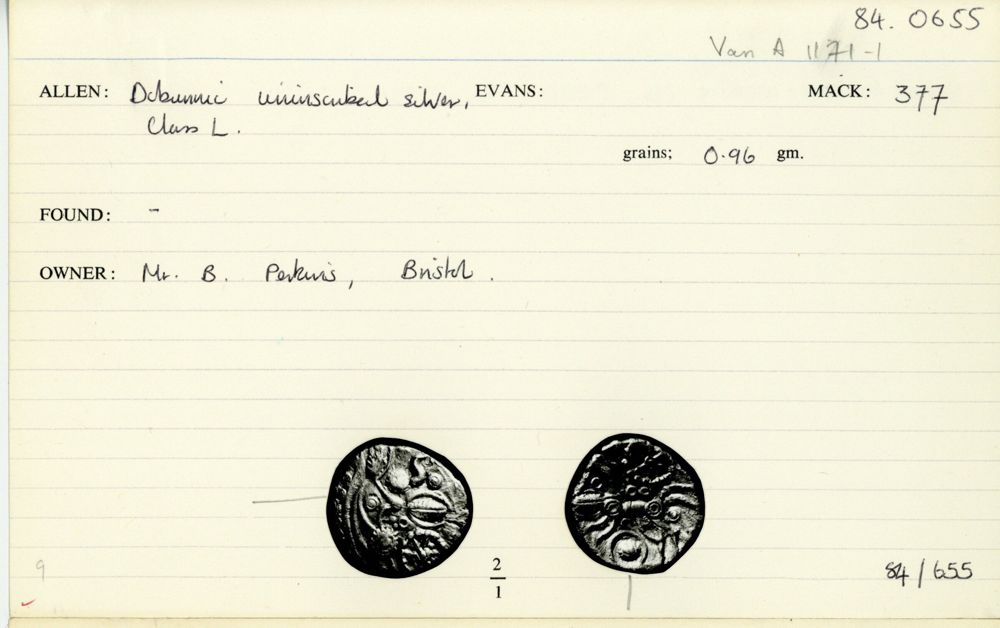 84. 0655
Van A 1171-1
ALLEN: Dobunnic uninscribed silver, EVANS: MACK: 377
Class L.
grains; 0.96 gm.
FOUND: -
OWNER: Mr. B. Perkins, Bristol.
2
1
9
84/655